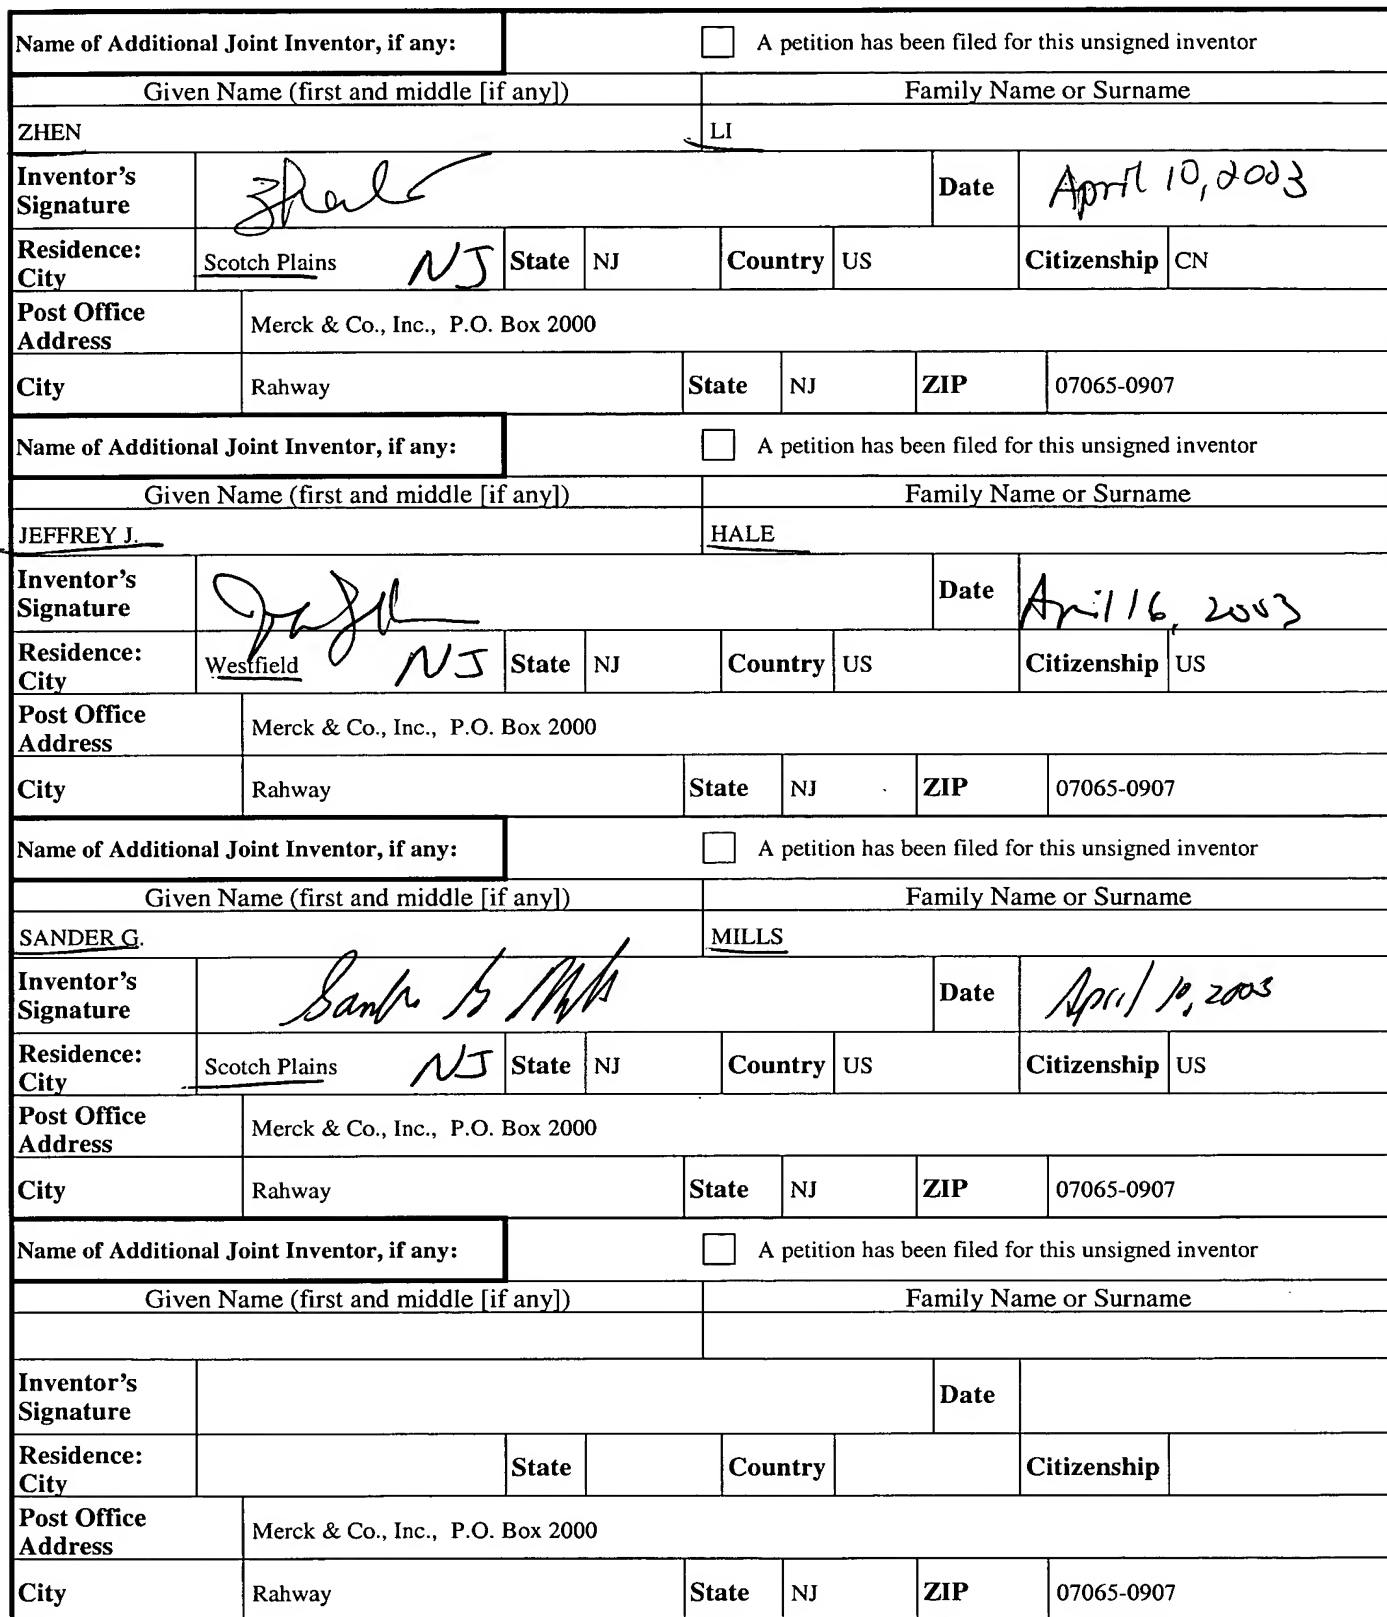 Name of Additional Joint Inventor, if any: A petition has been filed for this unsigned inventor
Given Name (first and middle [if any]) Family Name or Surname
ZHEN LI
Inventor's Signature Date April 10, 2003
Residence: City Scotch Plains NJ State NJ Country US Citizenship CN
Post Office Address Merck & Co., Inc., P.O. Box 2000
City Rahway State NJ ZIP 07065-0907
Name of Additional Joint Inventor, if any: A petition has been filed for this unsigned inventor
Given Name (first and middle [if any]) Family Name or Surname
JEFFREY J. HALE
Inventor's Signature Date April 16, 2003
Residence: City Westfield NJ State NJ Country US Citizenship US
Post Office Address Merck & Co., Inc., P.O. Box 2000
City Rahway State NJ ZIP 07065-0907
Name of Additional Joint Inventor, if any: A petition has been filed for this unsigned inventor
Given Name (first and middle [if any]) Family Name or Surname
SANDER G. MILLS
Inventor's Signature Sander G Mills Date April 10, 2003
Residence: City Scotch Plains NJ State NJ Country US Citizenship US
Post Office Address Merck & Co., Inc., P.O. Box 2000
City Rahway State NJ ZIP 07065-0907
Name of Additional Joint Inventor, if any: A petition has been filed for this unsigned inventor
Given Name (first and middle [if any]) Family Name or Surname
Inventor's Signature Date
Residence: City State Country Citizenship
Post Office Address Merck & Co., Inc., P.O. Box 2000
City Rahway State NJ ZIP 07065-0907